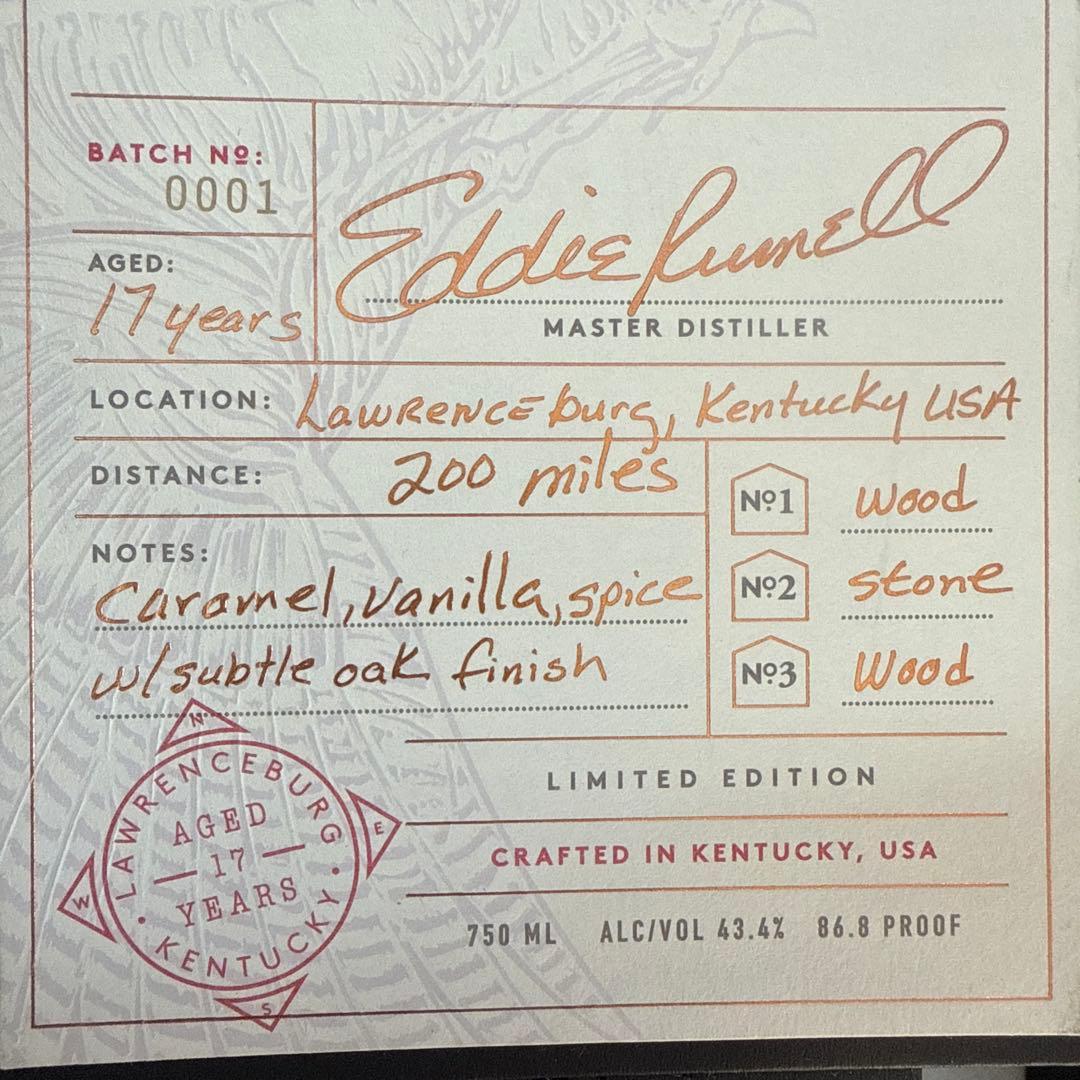 BATCH Nº:
0001
Eddie Russell
MASTER DISTILLER
AGED:
17 years
LOCATION: Lawrenceburg, Kentucky USA
DISTANCE: 200 miles
Nº1 Wood
NOTES:
Caramel, vanilla, spice
w/ subtle oak finish
Nº2 stone
Nº3 Wood
LIMITED EDITION
CRAFTED IN KENTUCKY, USA
750 ML ALC/VOL 43.4% 86.8 PROOF
N
E
S
W
LAWRENCEBURG
AGED
17
YEARS
KENTUCKY